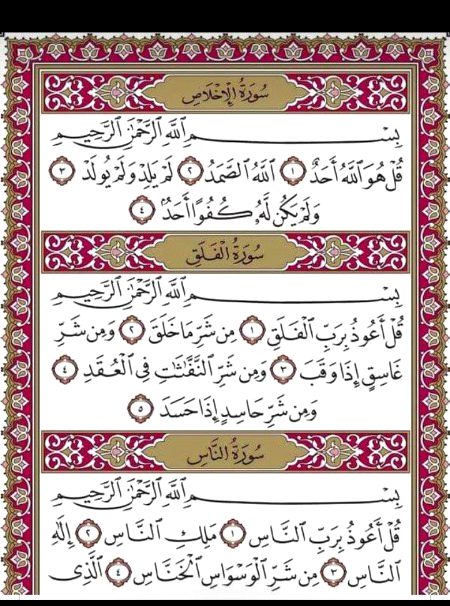 سُورَةُ الإِخْلَاصِ
بِسْمِ ٱللَّهِ ٱلرَّحْمَٰنِ ٱلرَّحِيمِ
قُلْ هُوَ ٱللَّهُ أَحَدٌ ١ ٱللَّهُ ٱلصَّمَدُ ٢ لَمْ يَلِدْ وَلَمْ يُولَدْ ٣
وَلَمْ يَكُن لَّهُۥ كُفُوًا أَحَدٌۢ ٤
سُورَةُ الْفَلَقِ
بِسْمِ ٱللَّهِ ٱلرَّحْمَٰنِ ٱلرَّحِيمِ
قُلْ أَعُوذُ بِرَبِّ ٱلْفَلَقِ ١ مِن شَرِّ مَا خَلَقَ ٢ وَمِن شَرِّ
غَاسِقٍ إِذَا وَقَبَ ٣ وَمِن شَرِّ ٱلنَّفَّٰثَٰتِ فِى ٱلْعُقَدِ ٤
وَمِن شَرِّ حَاسِدٍ إِذَا حَسَدَ ٥
سُورَةُ النَّاسِ
بِسْمِ ٱللَّهِ ٱلرَّحْمَٰنِ ٱلرَّحِيمِ
قُلْ أَعُوذُ بِرَبِّ ٱلنَّاسِ ١ مَلِكِ ٱلنَّاسِ ٢ إِلَٰهِ
ٱلنَّاسِ ٣ مِن شَرِّ ٱلْوَسْوَاسِ ٱلْخَنَّاسِ ٤ ٱلَّذِى